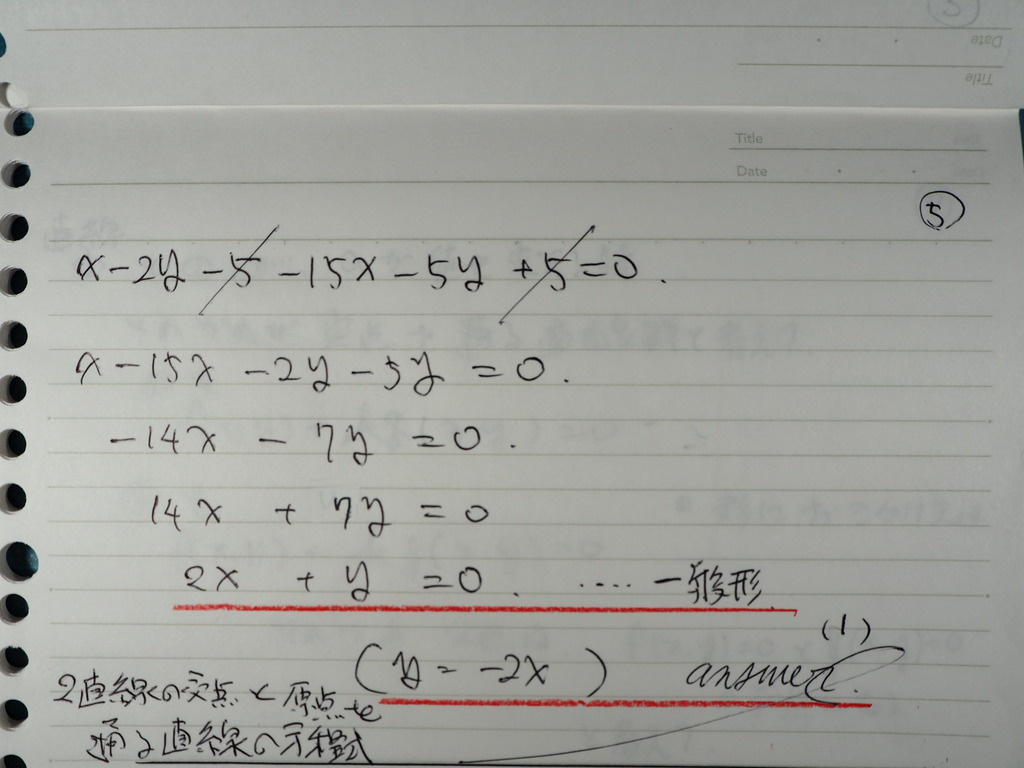 Date
Title
Title
Date
5
x-2y-5-15x-5y+5=0.
x-15x-2y-5y=0.
-14x-7y=0.
14x+7y=0
2x+y=0. ....一般形
(y=-2x) answer. (1)
2直線の交点と原点を
通る直線の方程式